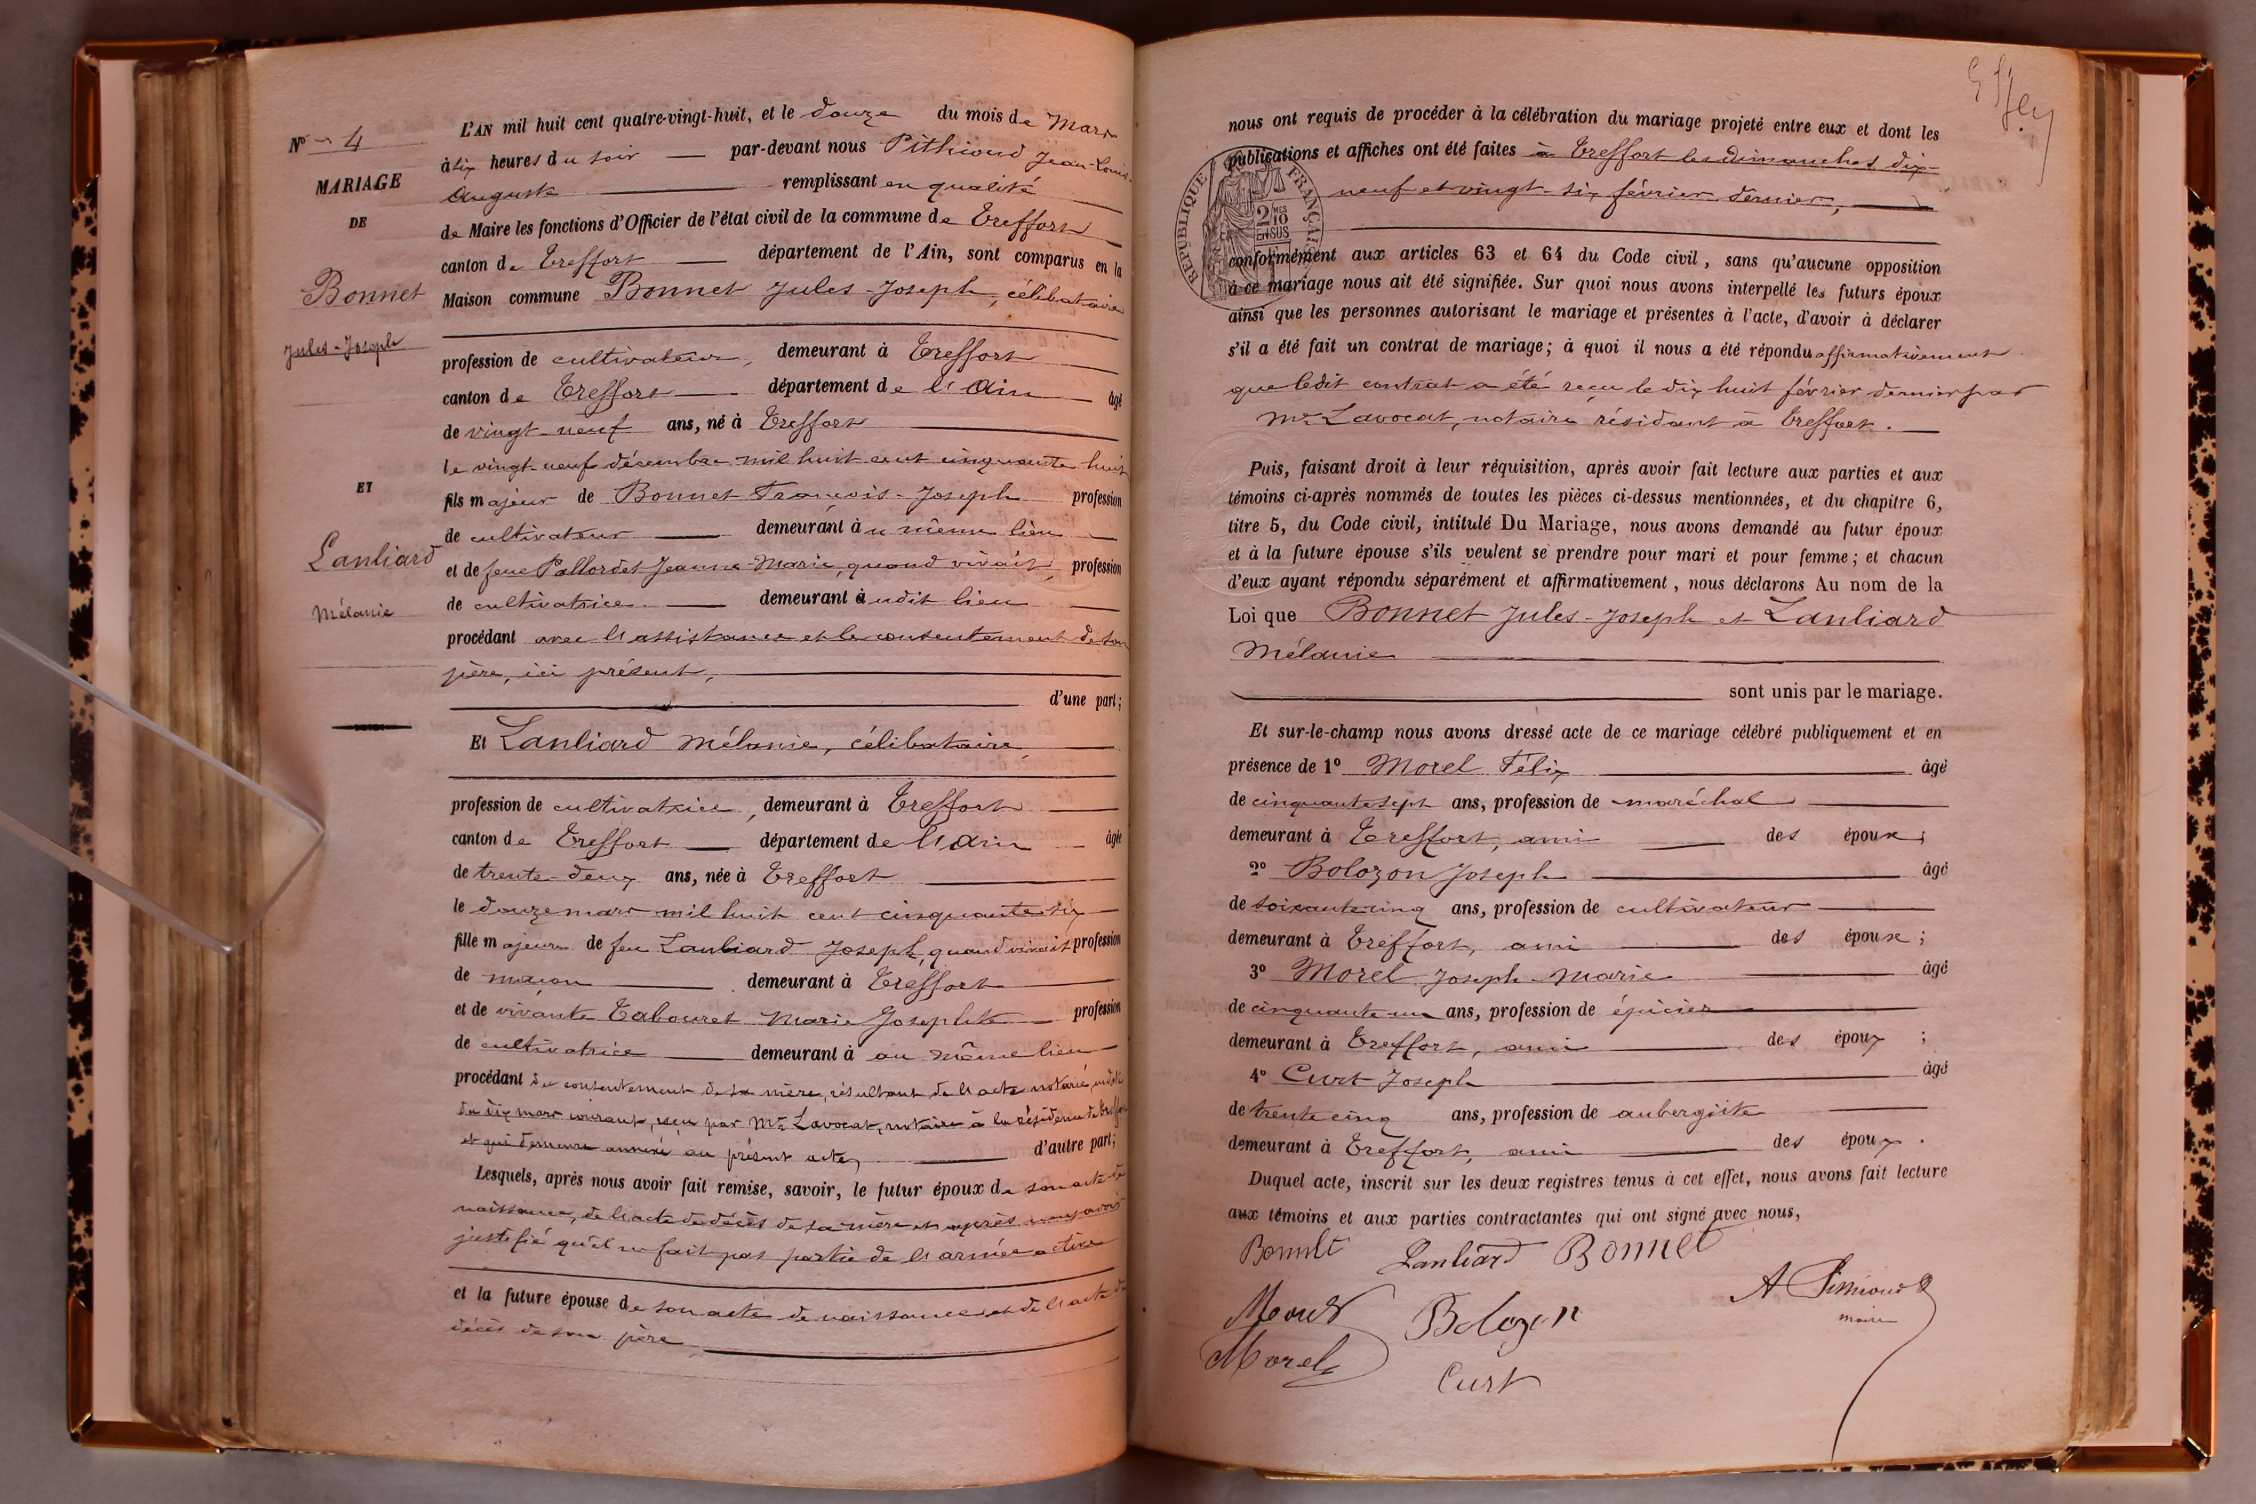 No 4
MARIAGE
DE
Bonnet
Jules-Joseph
ET
Lanliard
Mélanie
L'AN mil huit cent quatre-vingt-huit, et le douze du mois de Mars
à six heures du soir par-devant nous Pithioud Jean-Louis-
Auguste remplissant en qualité
de Maire les fonctions d'Officier de l'état civil de la commune de Treffort
canton de Treffort département de l'Ain, sont comparus en la
Maison commune Bonnet Jules-Joseph, célibataire
profession de cultivateur, demeurant à Treffort
canton de Treffort département de l'Ain âgé
de vingt-neuf ans, né à Treffort
le vingt-neuf décembre mil huit cent cinquante huit
fils majeur de Bonnet François-Joseph profession
de cultivateur demeurant au même lieu
et de feue Pallordet Jeanne-Marie, quand vivait, profession
de cultivatrice demeurant audit lieu
procédant avec l'assistance et le consentement de son
père, ici présent,
d'une part;
Et Lanliard Mélanie, célibataire
profession de cultivatrice, demeurant à Treffort
canton de Treffort département de l'Ain âgée
de trente-deux ans, née à Treffort
le douze mars mil huit cent cinquante-six
fille majeure de feu Lanliard Joseph, quand vivait profession
de maçon demeurant à Treffort
et de vivante Tabouret Marie Josephte profession
de cultivatrice demeurant à au même lieu
procédant du consentement de sa mère, résultant de l'acte notarié, en date
du dix mars courant, reçu par Me Lavocat, notaire à la résidence de Treffort
et qui demeure annexé au présent acte, d'autre part;
Lesquels, après nous avoir fait remise, savoir, le futur époux de son acte de
naissance, de l'acte de décès de sa mère et après nous avoir
justifié qu'il ne fait pas partie de l'armée active
et la future épouse de son acte de naissance et de l'acte de
décès de son père
nous ont requis de procéder à la célébration du mariage projeté entre eux et dont les
publications et affiches ont été faites à Treffort les dimanches dix-
neuf et vingt-six février dernier,
RÉPUBLIQUE FRANÇAISE
2 MES 10
EN SUS
conformément aux articles 63 et 64 du Code civil, sans qu'aucune opposition
à ce mariage nous ait été signifiée. Sur quoi nous avons interpellé les futurs époux
ainsi que les personnes autorisant le mariage et présentes à l'acte, d'avoir à déclarer
s'il a été fait un contrat de mariage; à quoi il nous a été répondu affirmativement
que ledit contrat a été reçu le dix huit février dernier par
Me Lavocat, notaire résidant à Treffort.
Puis, faisant droit à leur réquisition, après avoir fait lecture aux parties et aux
témoins ci-après nommés de toutes les pièces ci-dessus mentionnées, et du chapitre 6,
titre 5, du Code civil, intitulé Du Mariage, nous avons demandé au futur époux
et à la future épouse s'ils veulent se prendre pour mari et pour femme; et chacun
d'eux ayant répondu séparément et affirmativement, nous déclarons Au nom de la
Loi que Bonnet Jules-Joseph et Lanliard
Mélanie
sont unis par le mariage.
Et sur-le-champ nous avons dressé acte de ce mariage célébré publiquement et en
présence de 1o Morel Félix âgé
de cinquante sept ans, profession de maréchal
demeurant à Treffort, ami des époux;
2o Bolozon Joseph âgé
de soixante cinq ans, profession de cultivateur
demeurant à Treffort, ami des époux;
3o Morel Joseph-Marie âgé
de cinquante-un ans, profession de épicier
demeurant à Treffort, ami des époux;
4o Curt Joseph âgé
de trente cinq ans, profession de aubergiste
demeurant à Treffort, ami des époux.
Duquel acte, inscrit sur les deux registres tenus à cet effet, nous avons fait lecture
aux témoins et aux parties contractantes qui ont signé avec nous,
Bonnet Lanliard Bonnet
A Pithioud
maire
Morel Bolozon
Morel
Curt